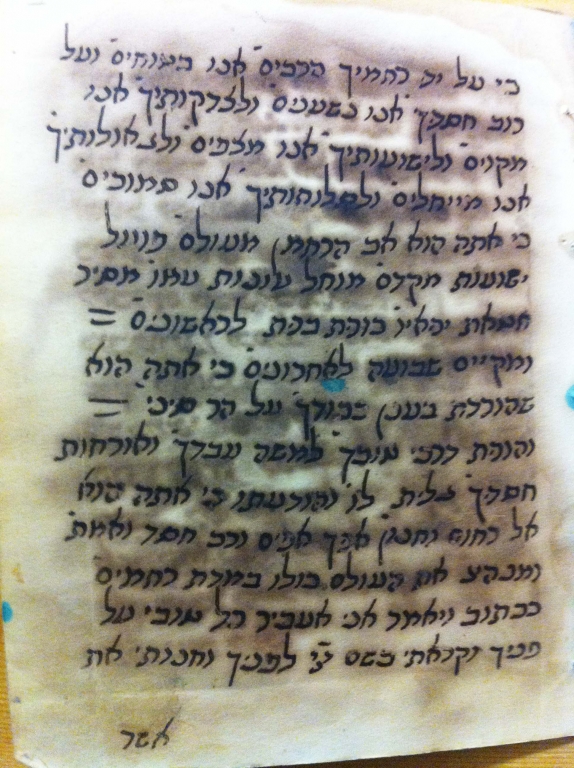 כי על יה רחמיך הרבים אנו בטוחים ועל
רוב חסדך אנו נשענים ולצדקותיך אנו
מקוים ולישועותיך אנו מצפים ולגאולותיך
אנו מייחלים ולסליחותיך אנו סמוכים
כי אתה הוא אב הרחמן מעולם פויעל
ישועות מקדם מוחל עונות עמו מסיר
חטאת יראיו כורת ברית לראשונים =
ומקיים שבועה לאחרונים כי אתה הוא
שהורדת בענן כבודך על הר סיני =
והורת דרכי טובך למשה עבדך ואורחות
חסדיך גלית לו והודעתו כי אתה הוא
אל רחום וחנון ארך אפים ורב חסד ואמת
ומנהיג את העולם כולו במדת רחמים
ככתוב ויאמר אני אעביר כל טובי על
פניך וקראתי בשם ייי לפניך וחנותי את
אשר